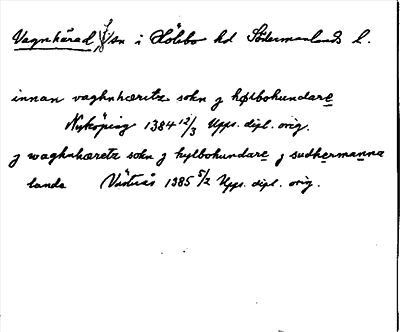 Vagnhärad sn i Hölebo hd Södermanlands l.
innan vaghnhæretz sokn j hølbohundare
Nyköping 1384 12/3 Upps. dipl. orig.
j waghnhæretz sokn j hylbohundare j sudhermanna
landa Västerås 1385 5/2 Upps. dipl. orig.